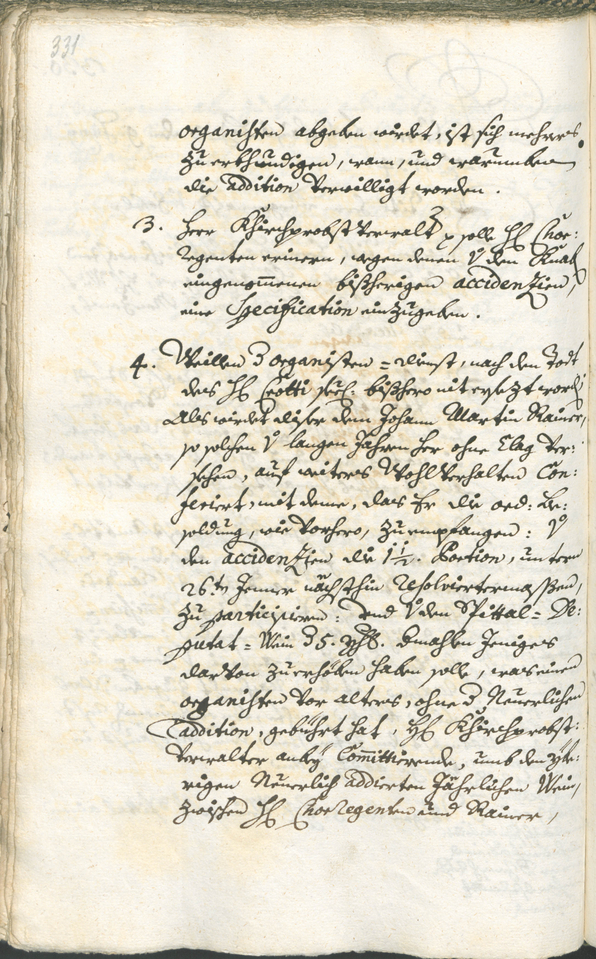 331
organisten abgeben würdet, ist sich mehrers
zu erkhundigen, wann, und warumben
die addition verwilligt worden.
3. Herr Khirchprobst Verwalter solle H: Chor:
Regenten erinern, wegen denen v: den Knab
eingenommenen bißherigen accidenzien,
eine Specification einzugeben.
4. Weillen organisten=dienst, nach dem Todt
des H: Ceotti seel: bißhero nit ersezt word
Als würdet diser dem Johann Martin Rainer,
so solchen v: langen Jahren her ohne Clag ver:
sehen, auf weiters Wohlverhalten Con:
feriert, mit deme, das Er die ord: Be:
soldung, wie vorhero, zu empfangen: v:
den accidenzien die 1½. Portion, untern
26ten Jenner nächsthin resolviertermaßen,
zu participieren: und v: den Spittal= De:
putat=Wein 5. Yhr. demahlen Jeniges
darvon zuerhöben haben solle, was einen
organisten vor alters, ohne Neuerlichen
addition, gebührt hat, H: Khirchprobst:
Verwalter anbey Committierende, umb den ybe:
rigen Neuerlich addierten Jährlichen Wein,
zwischen H: Chor Regenten und Rainer,